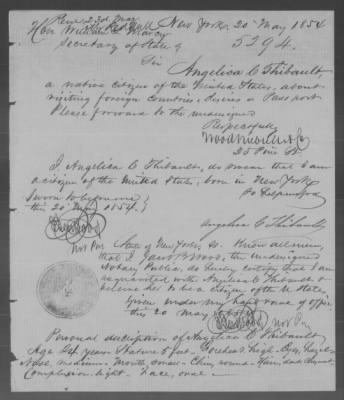 Rec'd 23d May New York, 20 May 1854
Hon William L Marcy
Secretary of State 5294.
Sir
Angelica C Thibault,
a native citizen of the United States, about
visiting foreign countries, desires a Pass port
Please forward to the undersigned
Respectfully
25 Pine St
I, Angelica C Thibault, do swear that I am
a citizen of the United States, born in New York
Sworn to before me
this 20 May 1854.
Angelica C Thibault
Not Pub State of New York, ss. Know all men,
that I, Jacob the undersigned
Notary Public, do hereby certify that I am
acquainted with Angelica C Thibault &
believe her to be a citizen of the U States,
Given under my hand & seal of office
this 20 May
Not Pub
Personal description of Angelica C Thibault
Age 24 years Stature 5 feet Forehead, high Eyes, hazel
Nose, medium Mouth, small Chin, round Hair,
Complexion, light Face, oval